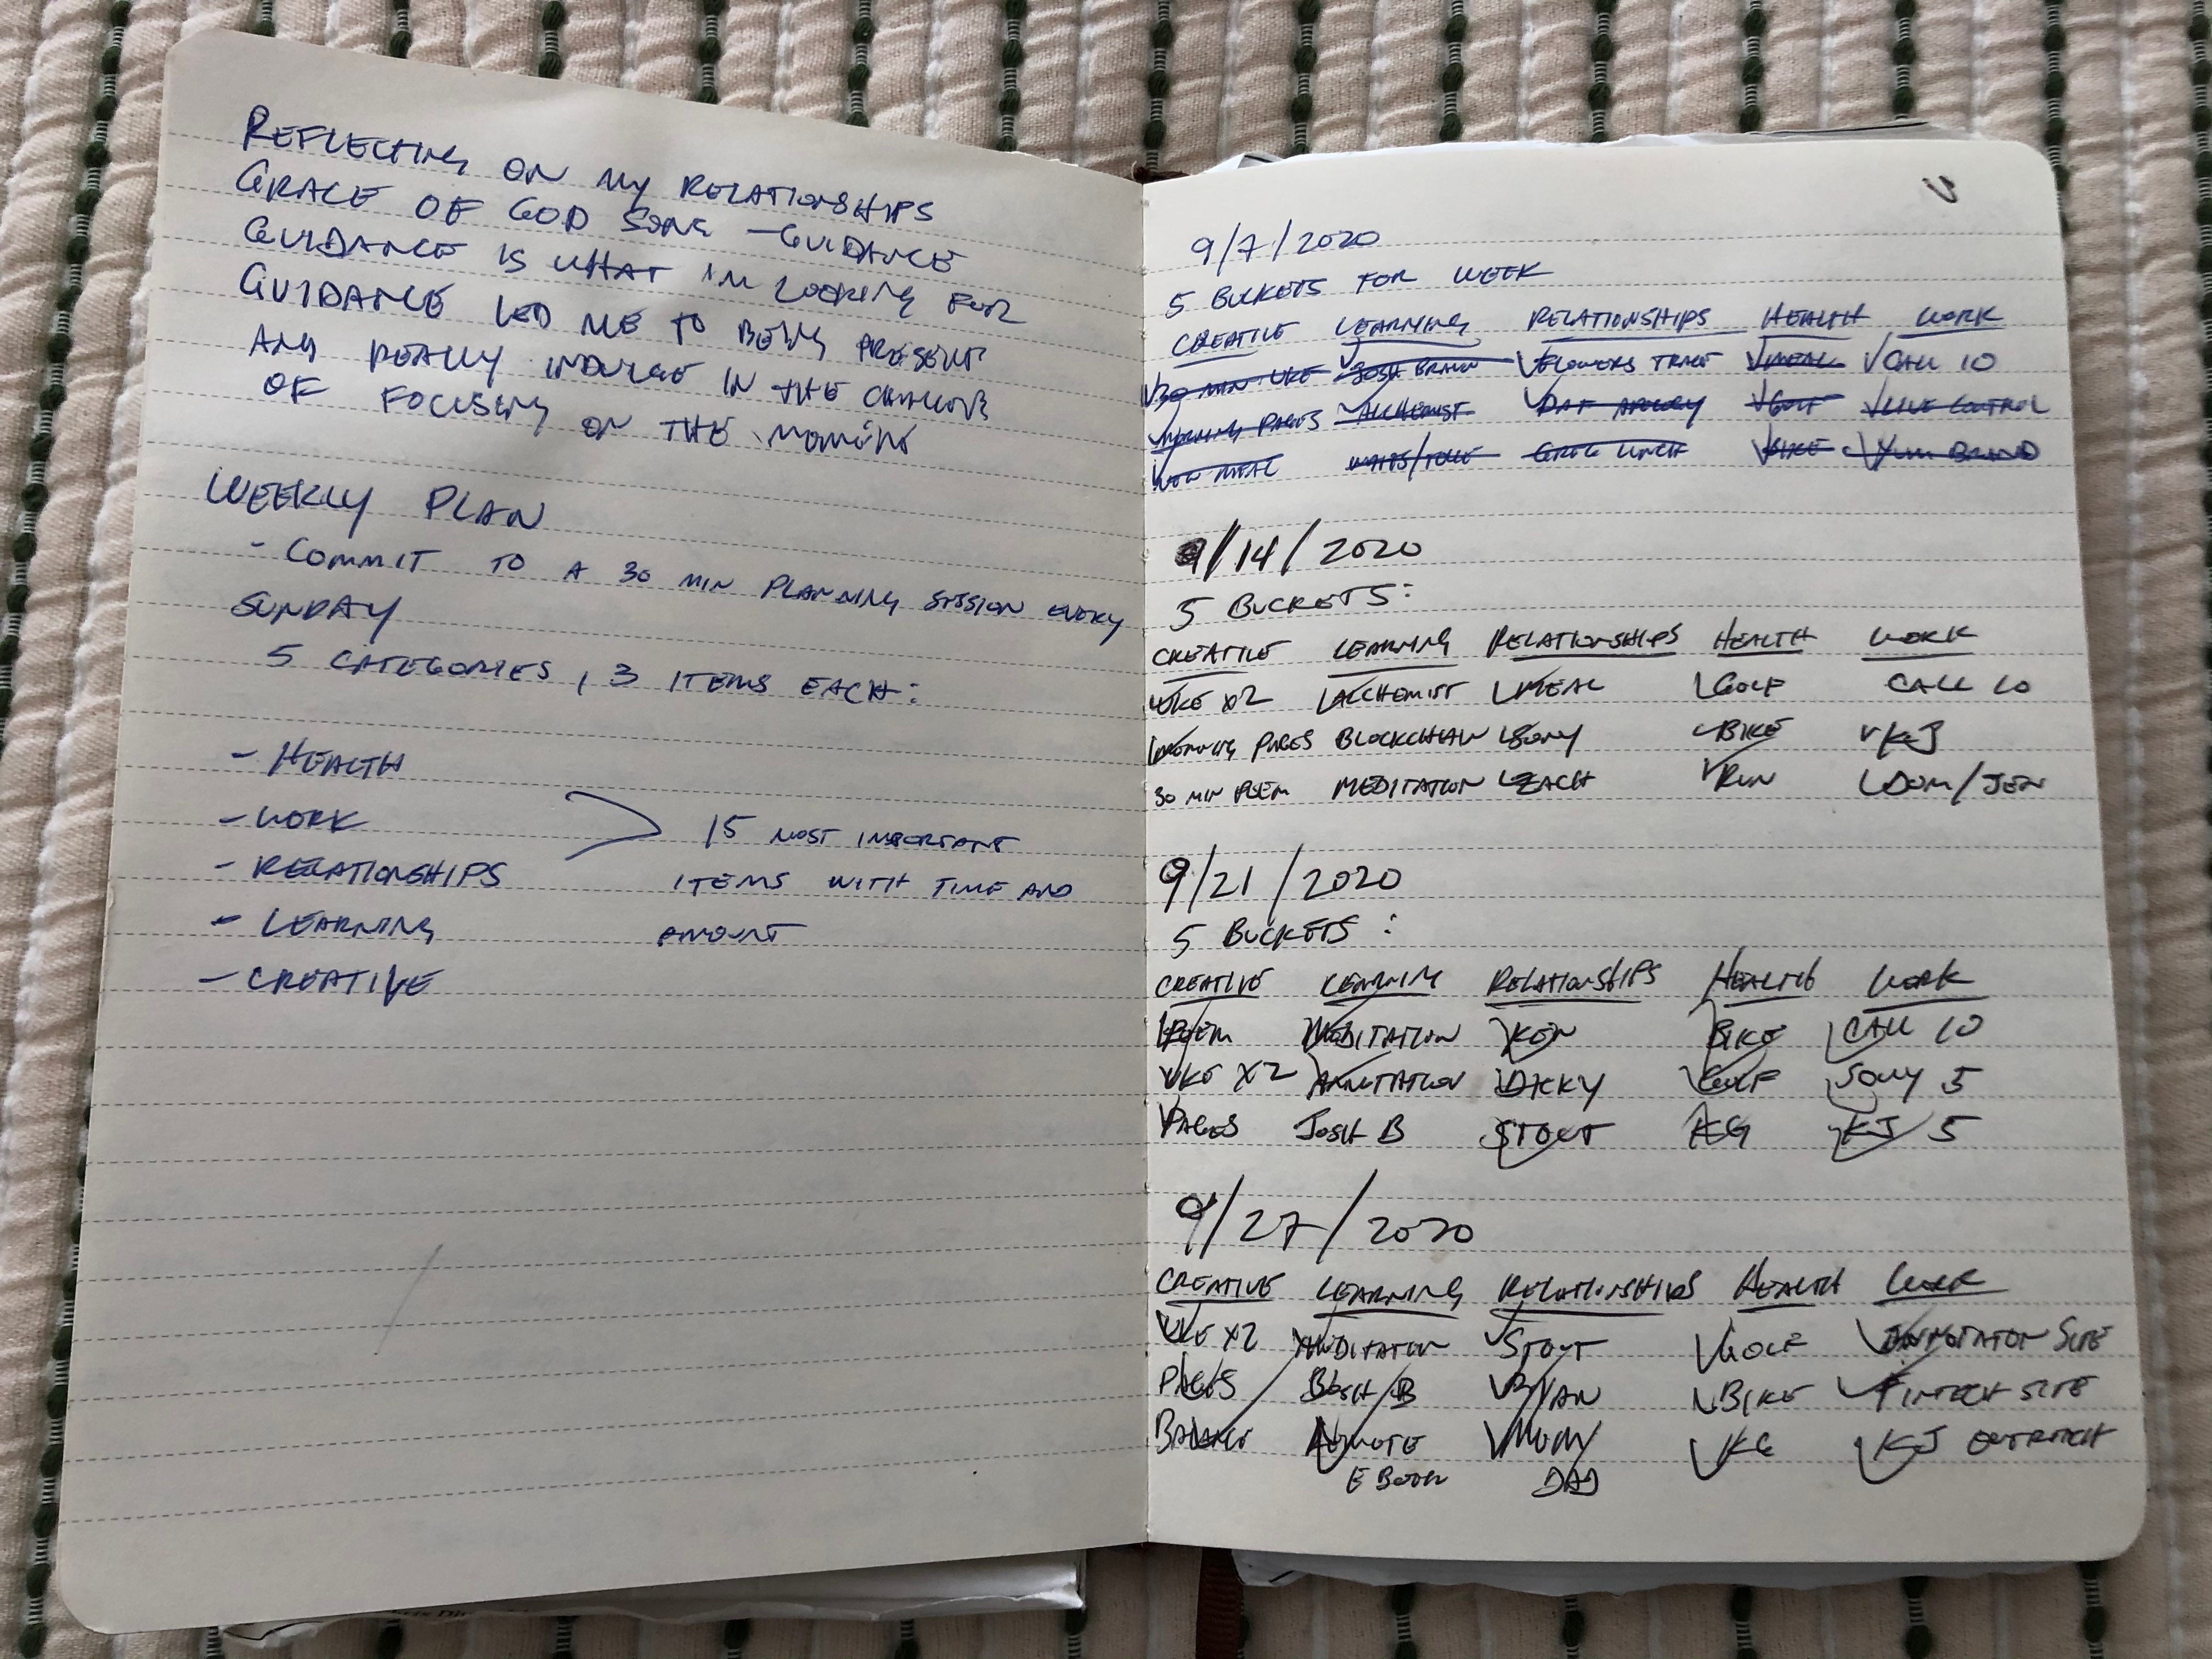 REFLECTING ON MY RELATIONSHIPS
GRACE OF GOD SONG - GUIDANCE
GUIDANCE IS WHAT IM LOOKING FOR
GUIDANCE LED ME TO BEING PRESENT
AND REALLY INDULGE IN THE
OF FOCUSING ON THE MOMENT
WEEKLY PLAN
- COMMIT TO A 30 MIN PLANNING SESSION EVERY
SUNDAY
5 CATEGORIES, 3 ITEMS EACH:
- HEALTH
- WORK
- RELATIONSHIPS
- LEARNING
- CREATIVE
15 MOST IMPORTANT
ITEMS WITH TIME AND
AMOUNT
9/7/2020
5 BUCKETS FOR WEEK
CREATIVE LEARNING RELATIONSHIPS HEALTH WORK
30 MIN UKE JOSH BRAUN FLOWERS MEAL CALL 10
MORNING PAGES ALCHEMIST GOLF LIVE CONTROL
MEAL GREG LUNCH BIKE YUM BRAND
9/14/2020
5 BUCKETS:
CREATIVE LEARNING RELATIONSHIPS HEALTH WORK
UKE x2 ALCHEMIST MEAL GOLF CALL 10
MORNING PAGES BLOCKCHAIN SONY BIKE KJ
30 MIN POEM MEDITATION ZACH RUN DOM/JEN
9/21/2020
5 BUCKETS:
CREATIVE LEARNING RELATIONSHIPS HEALTH WORK
POEM MEDITATION KEN BIKE CALL 10
UKE X2 ANNOTATION DICKY GOLF SONY 5
PAGES JOSH B STOUT KG KJ 5
9/27/2020
CREATIVE LEARNING RELATIONSHIPS HEALTH WORK
UKE X2 MEDITATION STOUT GOLF ANNOTATON SITE
PAGES JOSH B RYAN BIKE FINTECH SITE
BALANCE REMOTE MOM/ KG KJ OUTREACH
E BOOK DAD